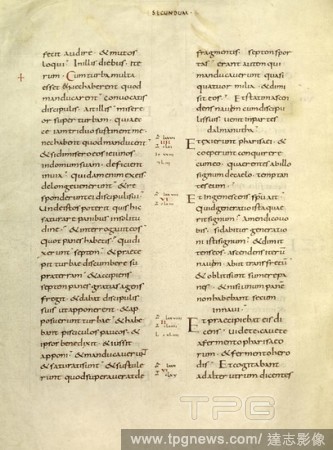 SECUNDUM
fecit audire & mutos
loqui In illis diebus ite
rum Cum turba multa
esset Nec haberent quod
manducarent convocatis
discipulis Ait illis miserere
or super turbam quia ec
ce iam triduo sustinent me
nec habent quod manducent
& si dimisero eos ieiunos
in domum suam deficient
in via Quidam enim ex eis
de longe venerunt & re
sponderunt ei discipuli sui
Unde istos poterit quis hic
saturare panibus in solitu
dine & interrogavit eos
quot panes habetis Qui di
xerunt septem & praece
pit turbae discumbere su
pra terram & accipiens
septem panes gratias agens
fregit & dabat discipulis
suis ut apponerent & ap
posuerunt turbae & habe
bant pisciculos paucos &
ipsos benedixit & iussit
apponi & manducaverunt
& saturati sunt & sustule
runt quod superaverat de
fragmentis septem spor
tas erant autem qui
manducaverunt quasi
quattuor milia & dimi
sit eos Et statim ascen
dens navim cum discipu
lis suis venit in partes
dalmanutha
Et exierunt pharisaei &
coeperunt conquirere
cum eo quaerentes ab illo
signum de caelo temptan
tes eum
Et ingemescens spu ait
quid generatio ista quae
rit signum Amen dico vo
bis si dabitur generatio
ni isti signum & dimit
tens eos ascendens iterum
navim abiit trans fretum
& obliti sunt sumere pa
nes & nisi unum panem
non habebant secum
in navi
Et praecipiebat eis di
cens videte cavete
a fermento pharisaeo
rum & fermento hero
dis Et cogitabant
ad alterutrum dicentes
TPG
www.tpgnews.com / 達志影像